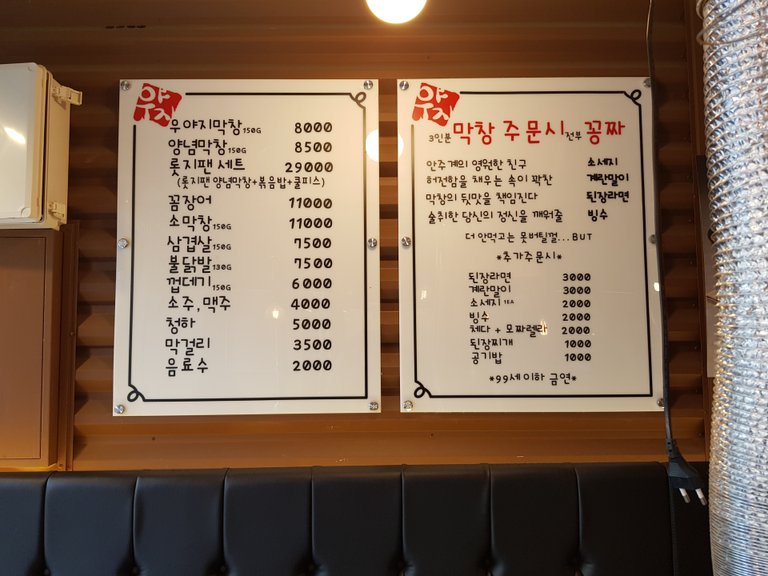 우야지
우야지막창150G 8000
양념막창150G 8500
롯지팬 세트 29000
(롯지팬 양념막창+볶음밥+쿨피스)
꼼장어 11000
소막창150G 11000
삼겹살150G 7500
불닭발130G 7500
껍데기150G 6000
소주, 맥주 4000
청하 5000
막걸리 3500
음료수 2000
우야지
3인분 막창 주문시 전부 꽁짜
안주계의 영원한 친구 소세지
허전함을 채우는 속이 꽉찬 계란말이
막창의 뒷맛을 책임진다 된장라면
술취한 당신의 정신을 깨워줄 빙수
더 안먹고는 못버틸껄...BUT
*추가주문시*
된장라면 3000
계란말이 3000
소세지 1EA 2000
빙수 2000
체다 + 모짜렐라 2000
된장찌개 1000
공기밥 1000
*99세 이하 금연*